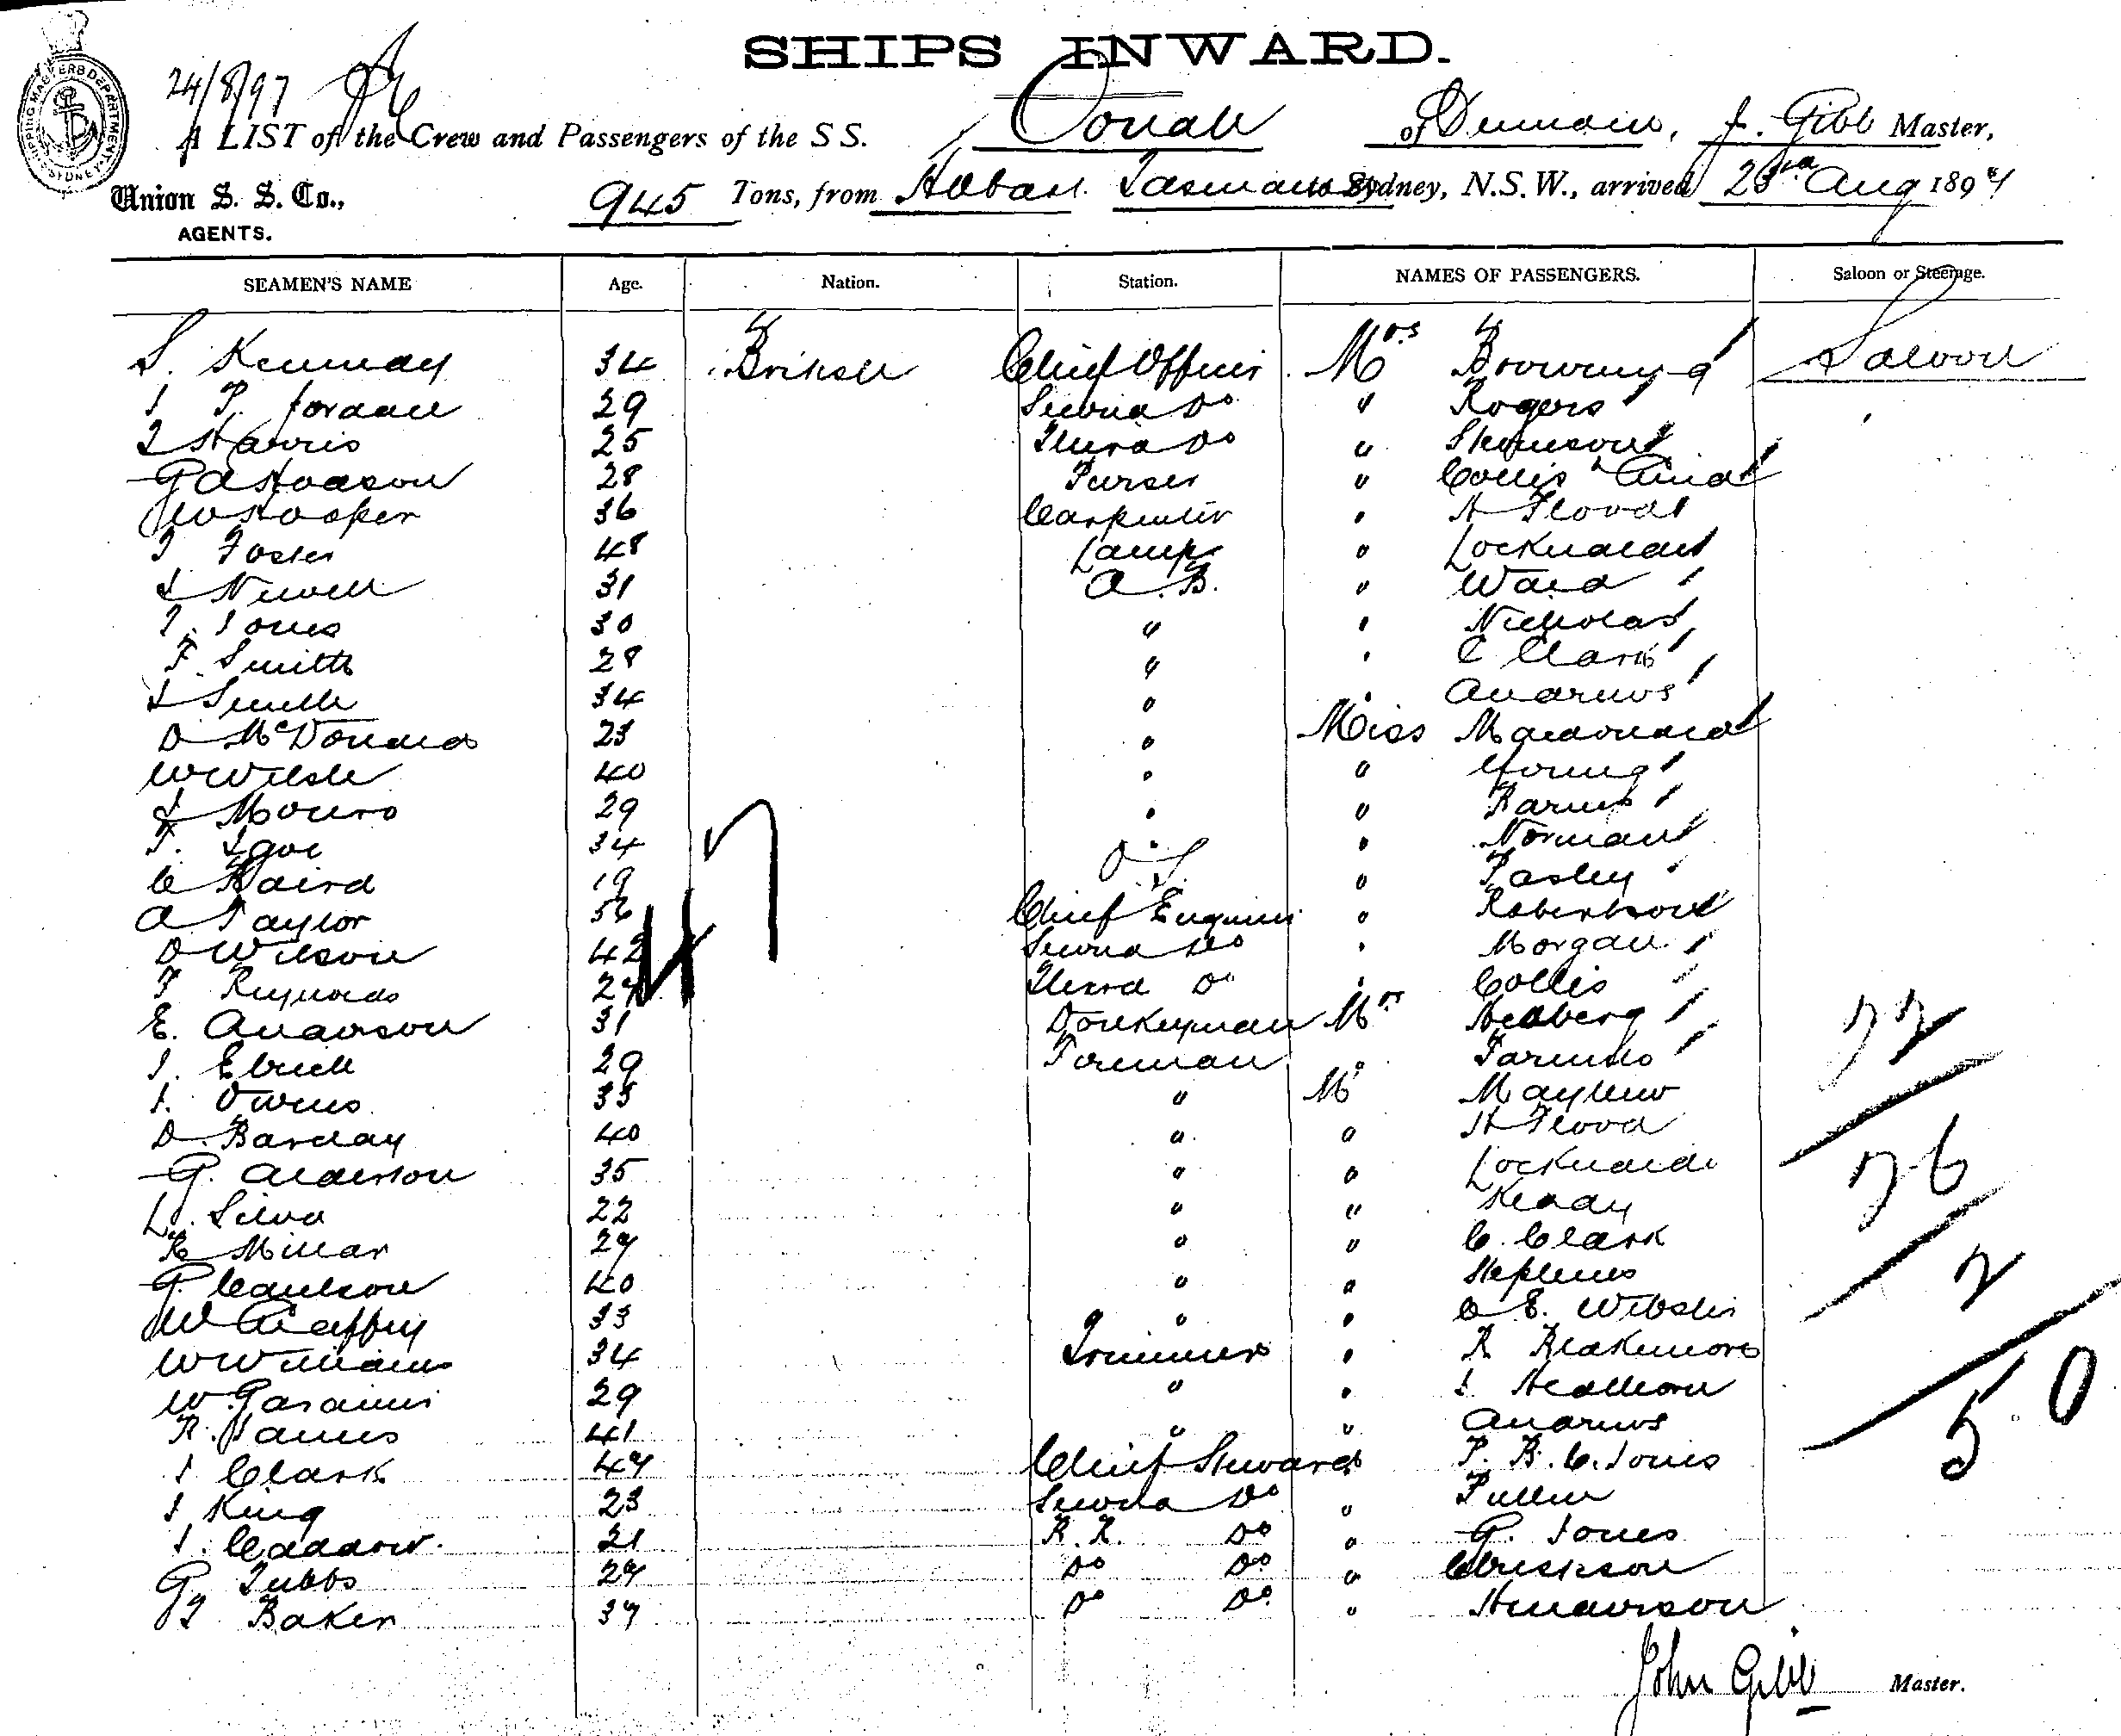 SHIPS INWARD.
SHIPPING MASTERS DEPARTMENT SYDNEY
24/8/97
A LIST of the Crew and Passengers of the S S. Oonah of Dunedin, J. Gibb Master,
Union S. S. Co., AGENTS. 945 Tons, from Hobart Tasmania Sydney, N.S.W., arrived 23rd Aug 1897
SEAMEN'S NAME Age. Nation. Station. NAMES OF PASSENGERS. Saloon or Steerage.
S. Kennedy 34 British Chief Officer Mrs Browning Saloon
J P. Jordan 29 Second Do " Rogers
T Harris 25 Third Do " Simpson
G A Hodson 28 Purser " Collis
Hooper 36 Carpenter " H Flood
T Foster 48 Lamps " Locknane
J Newell 31 A. B. " Ward
T. Jones 30 " " Nicholas
F. Smith 28 " " C Clark
J Smith 34 " " Andrews
D McDonald 23 " Miss Macdonald
W Welsh 40 " " Young
J Mouro 29 " " Barnes
F. Igoe 34 " " Norman
C Baird 19 O.S. " Pasley
A Taylor 56 Chief Engineer " Robertson
D Wilson 42 Second Do " Morgan
F Reynolds 27 Third Do " Collis
E. Anderson 31 Donkeyman Mrs Hedberg
J. Ebrill 29 Fireman "
J. Owens 33 " Mr Mayhew
D. Barclay 40 " " H Flood
G. Alderton 35 " "
L. Silva 22 " "
R Millar 27 " " C. Clark
G. Coulson 40 " " Stephens
W Caffrey 33 " " C E. Webster
W Williams 34 Trimmer " R Blakemore
W. Gardiner 29 " " J.
R. James 41 " " Andrews
J Clark 47 Chief Steward " P. B. C. Jones
J King 23 Second Do " Pullen
J. Caddow. 21 R. R. Do " G. Jones
G Tubbs 27 Do Do " Clarkson
G T Baker 37 Do Do " Henderson
47
22
26
2
50
John Gibb Master.